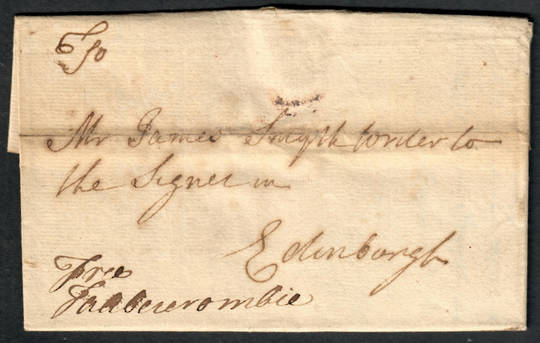 To
Mr James Smyth writer to
the Signet in
Edinburgh
Free
Jaabercrombie